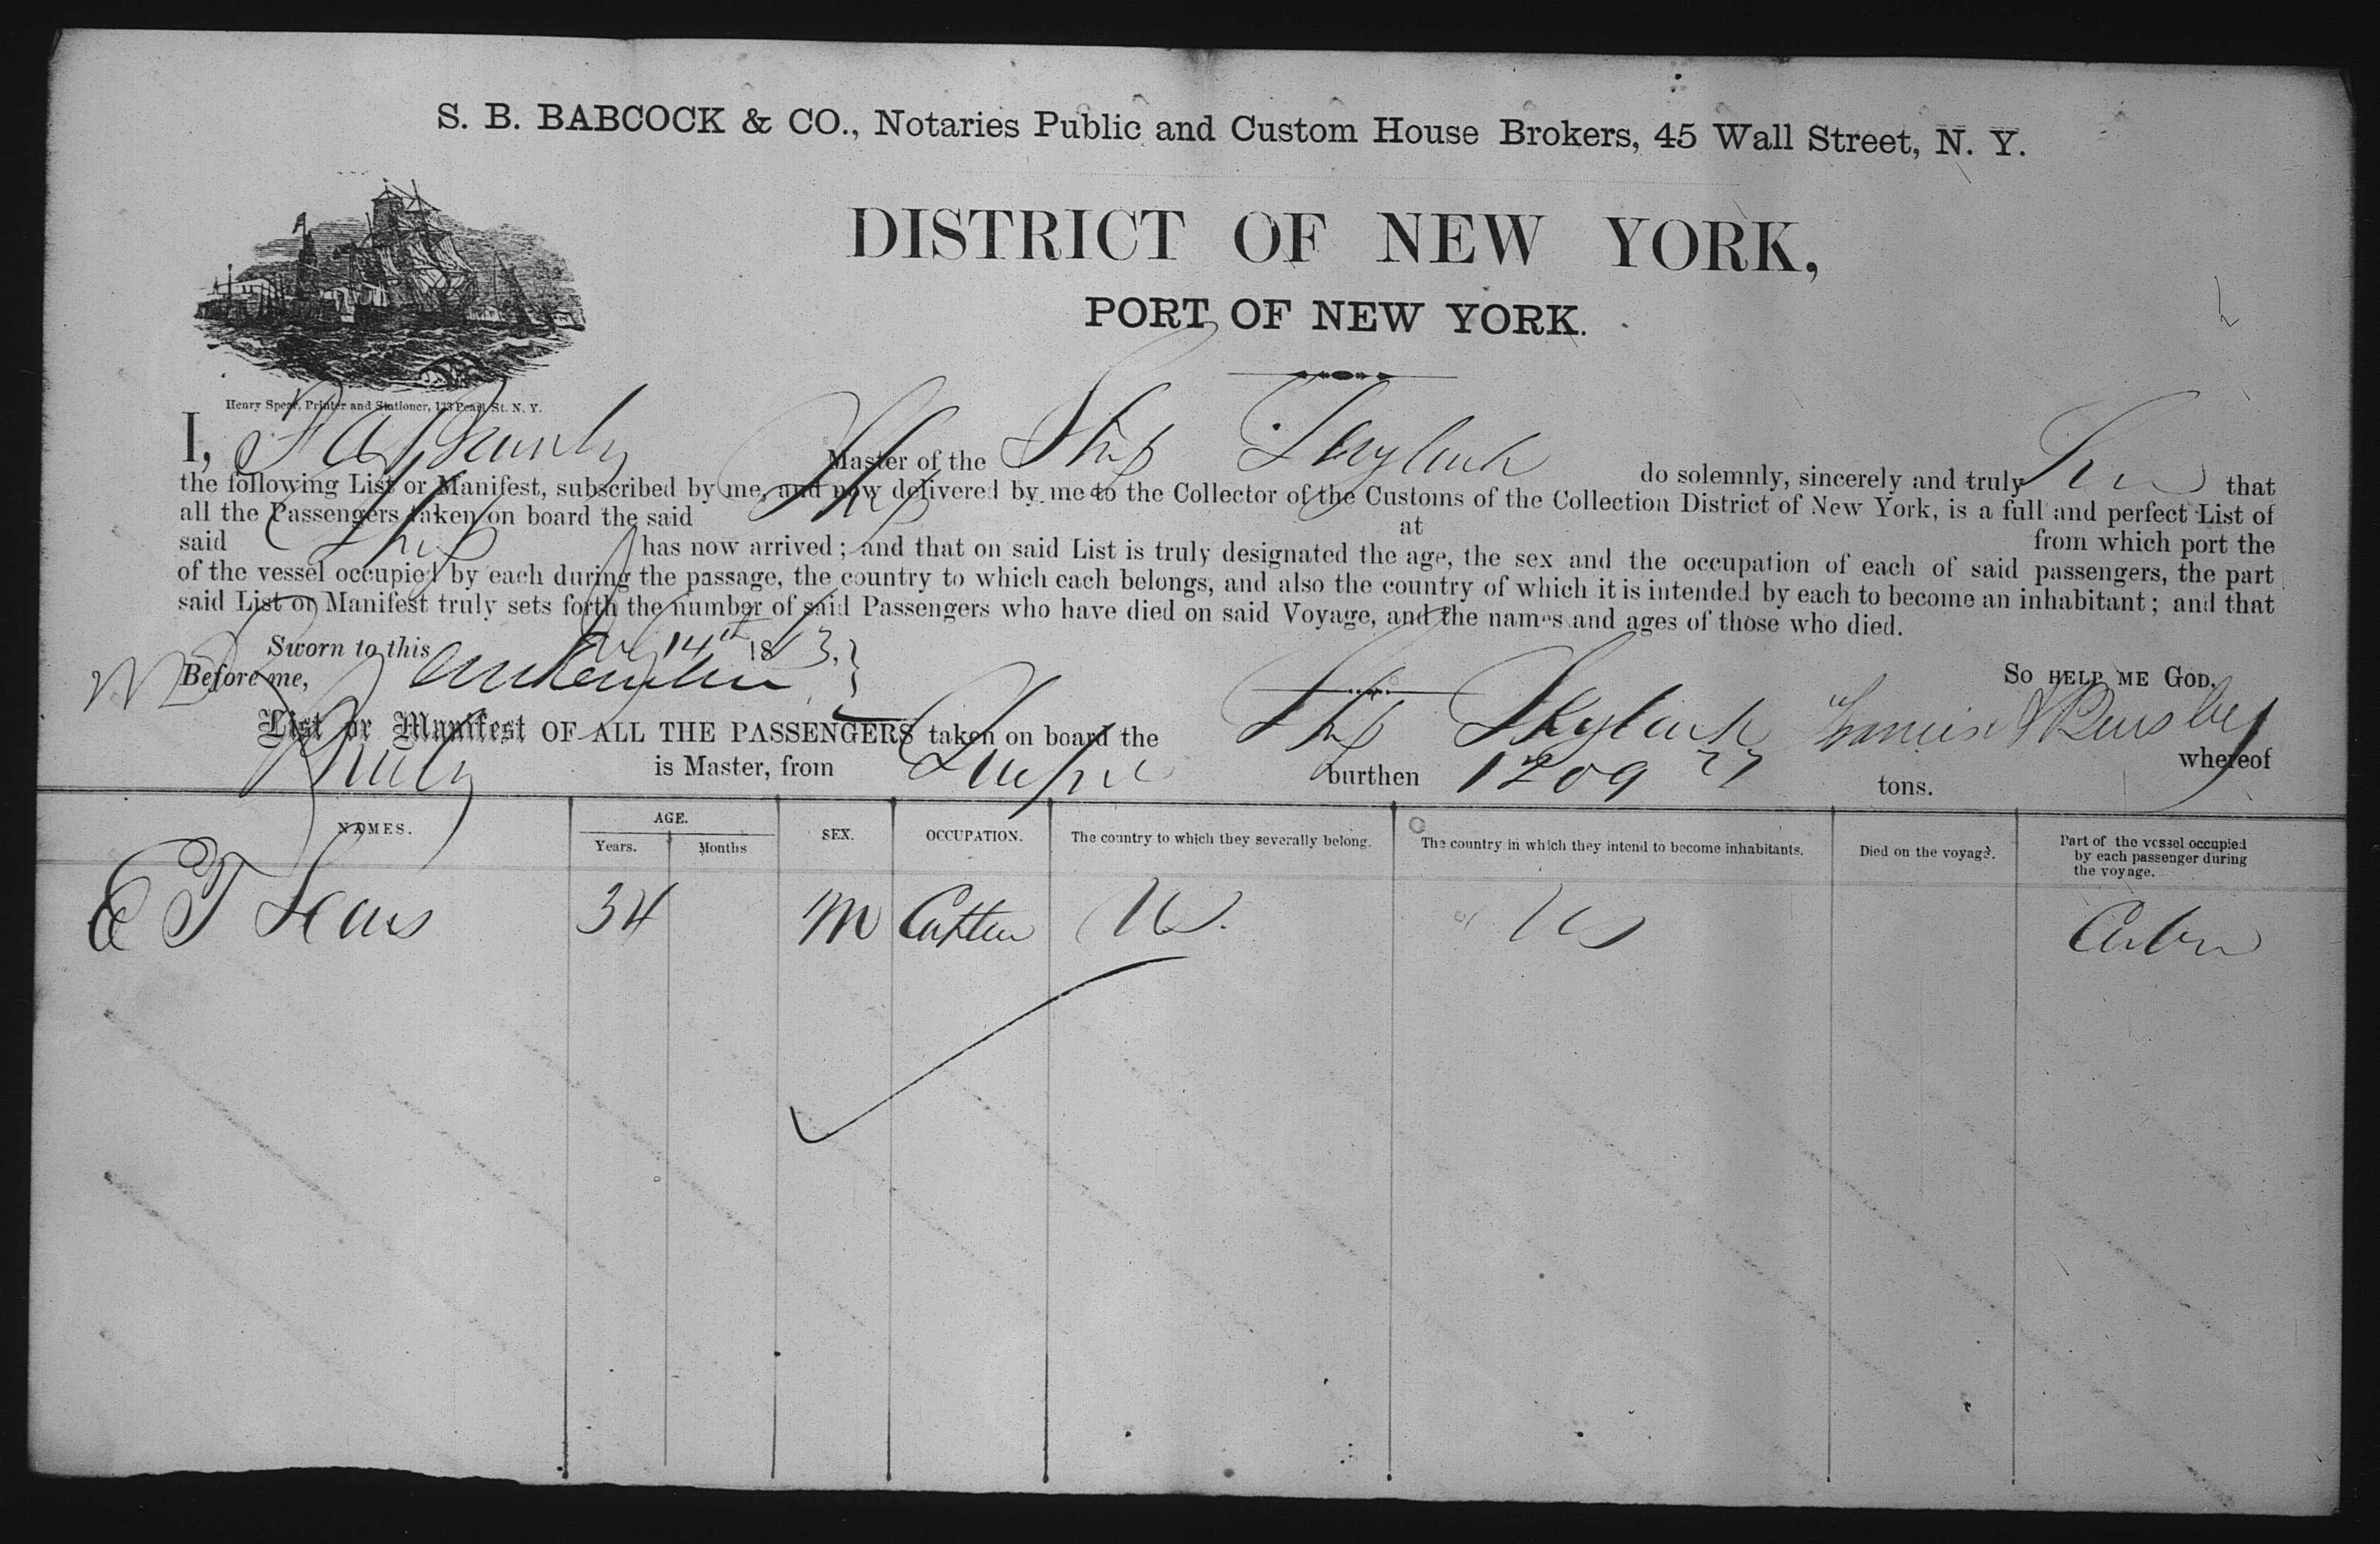 S. B. BABCOCK & CO., Notaries Public and Custom House Brokers, 45 Wall Street, N. Y.
DISTRICT OF NEW YORK,
PORT OF NEW YORK.
Henry Spear, Printer and Stationer, 133 Pearl St. N. Y.
I, Master of the Ship Skylark do solemnly, sincerely and truly that
the following List or Manifest, subscribed by me, and now delivered by me to the Collector of the Customs of the Collection District of New York, is a full and perfect List of
all the Passengers taken on board the said Ship at from which port the
said Ship has now arrived; and that on said List is truly designated the age, the sex and the occupation of each of said passengers, the part
of the vessel occupied by each during the passage, the country to which each belongs, and also the country of which it is intended by each to become an inhabitant; and that
said List or Manifest truly sets forth the number of said Passengers who have died on said Voyage, and the names and ages of those who died.
Sworn to this 14th 18 3.
Before me, So HELP ME GOD.
List or Manifest OF ALL THE PASSENGERS taken on board the Ship Skylark whereof
is Master, from burthen 1209 27 tons.
NAMES. AGE. Years. Months SEX. OCCUPATION. The country to which they severally belong. The country in which they intend to become inhabitants. Died on the voyage. Part of the vessel occupied by each passenger during the voyage.
E T Sears 34 M US. US Cabin